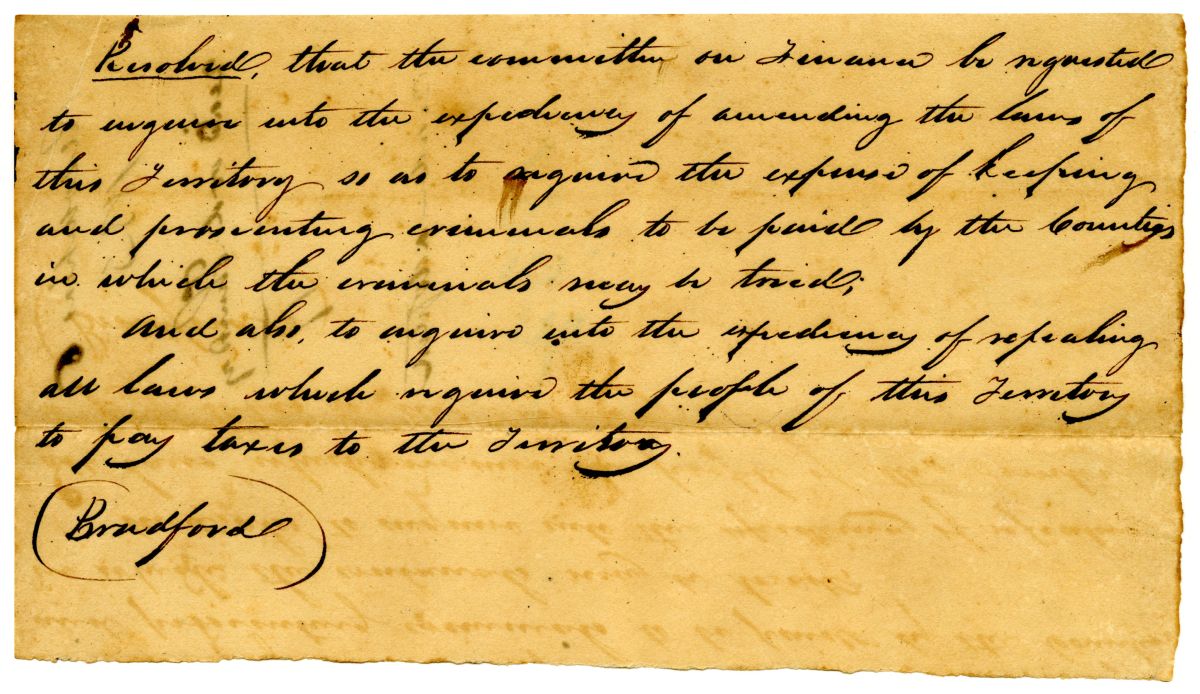 Resolved, that the committee on Finance be requested
to enquire into the expediency of amending the laws of
this Territory so as to require the expense of keeping
and prosecuting criminals to be paid by the Counties
in which the criminals may be tried;
And also, to enquire into the expediency of repealing
all laws which require the people of this Territory
to pay taxes to the Territory.
Bradford